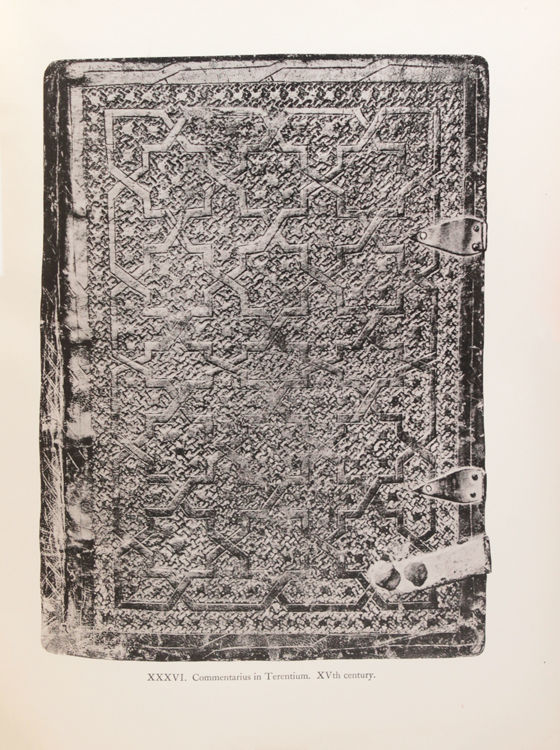 XXXVI. Commentarius in Terentium. XVth century.